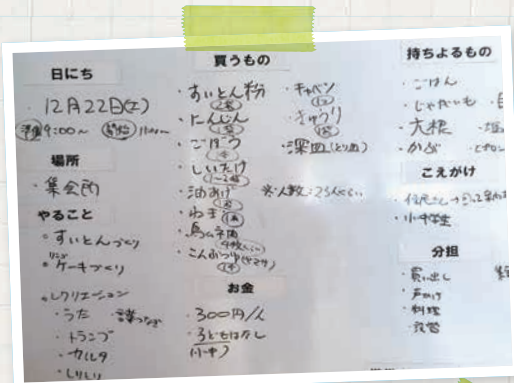 日にち
・12月22日(土)
準備 9:00～ 開始 11:00～
場所
・集会所
やること
・すいとんづくり
・ケーキづくり
・レクリエーション
・うた
・トランプ
・カルタ
・しりとり
買うもの
・すいとん粉
・にんじん
・ごぼう
・しいたけ
・油あげ
・ねぎ
・鳥ムネ肉
・こんぶつゆ(ヤマサ)
・キャベツ
・きゅうり
・深皿(とり皿)
※人数:25人くらい
お金
・300円/人
・子どもはなし
(小中)
持ちよるもの
・ごはん
・じゃがいも
・大根
・かぶ
こえがけ
・小中学生
分担
・買い出し
・声かけ
・料理
・設営